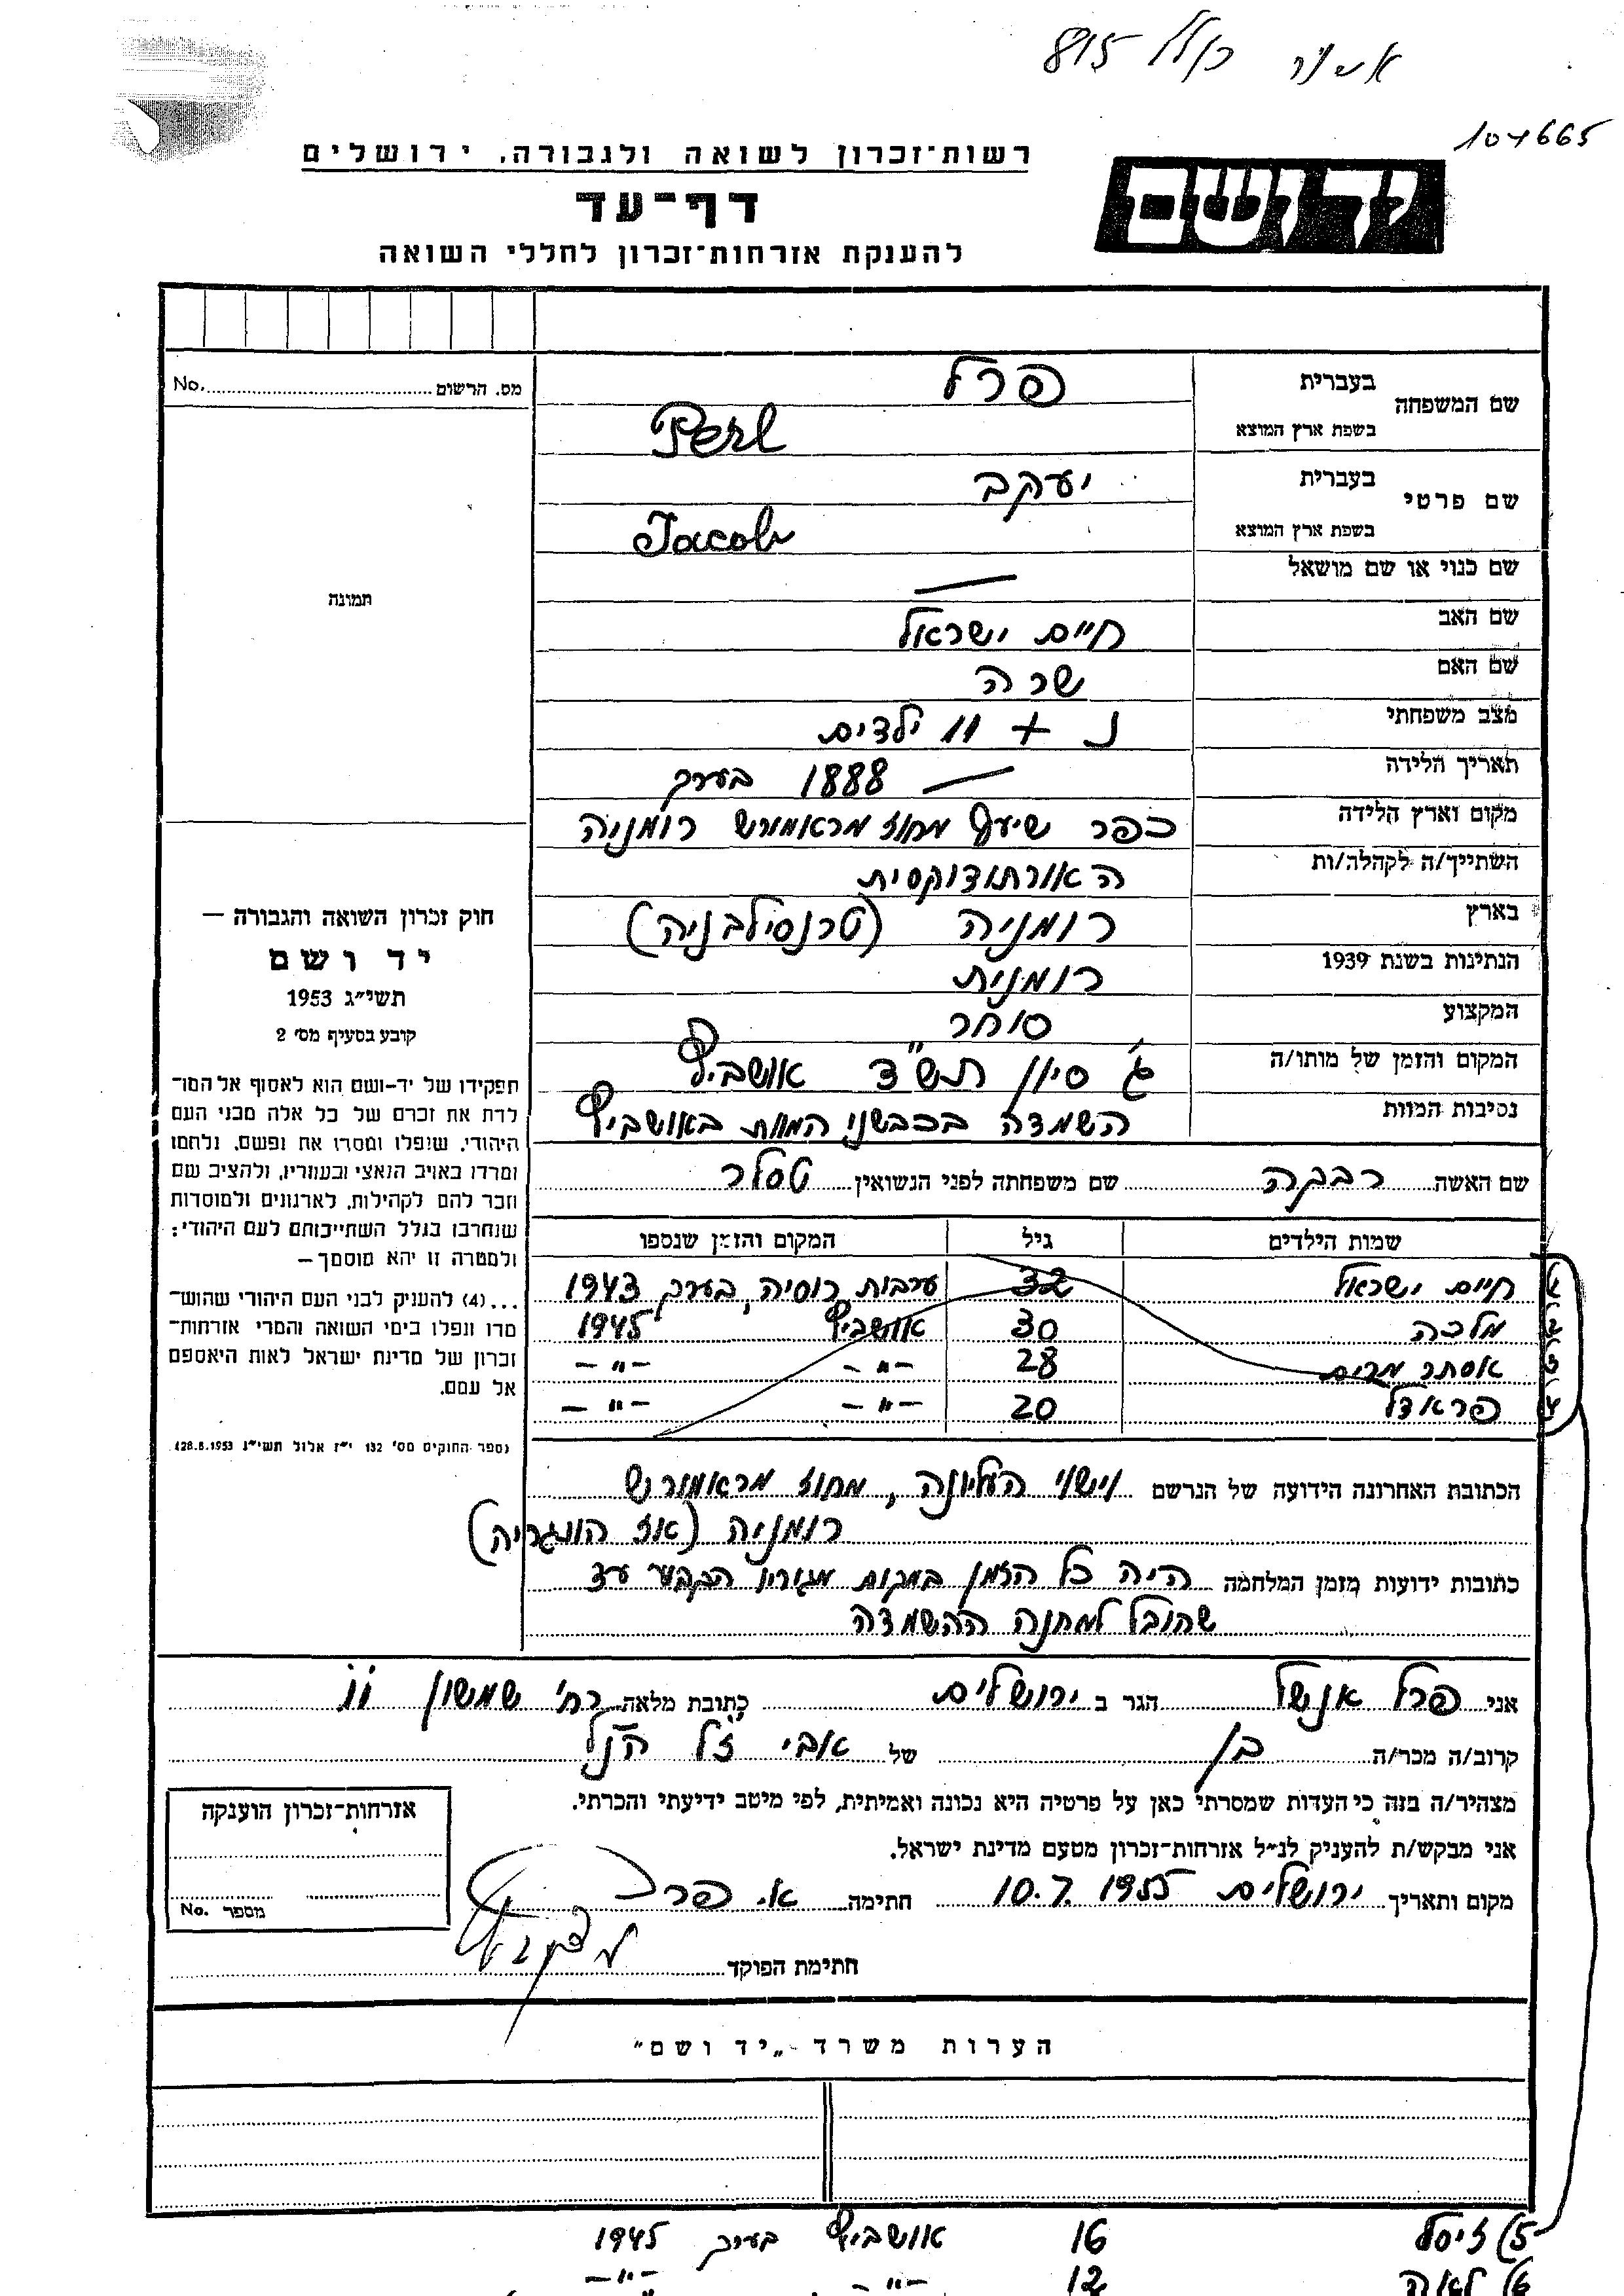 815
104665
רשות־זכרון לשואה ולגבורה, ירושלים
יד ושם
דף־עד
להענקת אזרחות־זכרון לחללי השואה
מס. הרשום No.
תמונה
חוק זכרון השואה והגבורה —
יד ושם
תשי״ג 1953
קובע בסעיף מס׳ 2
תפקידו של יד-ושם הוא לאסוף אל המו־
לדת את זכרם של כל אלה מבני העם
היהודי, שנפלו ומסרו את נפשם, נלחמו
ומרדו באויב הנאצי ובעוזריו, ולהציב שם
וזכר להם לקהילות, לארגונים ולמוסדות
שנחרבו בגלל השתייכותם לעם היהודי;
ולמטרה זו יהא מוסמך —
...(4) להעניק לבני העם היהודי שהוש־
מדו ונפלו בימי השואה והמרי אזרחות־
זכרון של מדינת ישראל לאות היאספם
אל עמם.
(ספר החוקים מס׳ 132 י״ז אלול תשי״ג 28.8.1953)
שם המשפחה בעברית פרל
בשפת ארץ המוצא Perl
שם פרטי בעברית יעקב
בשפת ארץ המוצא Jacob
שם כנוי או שם מושאל —
שם האב חיים ישראל
שם האם שרה
מצב משפחתי נ + 11 ילדים
תאריך הלידה — 1888 בערך
מקום וארץ הלידה כפר מחוז מראמורש רומניה
השתייך/ה לקהלה/ות האורתודוקסית
בארץ רומניה (טרנסילבניה)
הנתינות בשנת 1939 רומנית
המקצוע סוחר
המקום והזמן של מותו/ה ג׳ סיון תש"ד אושביץ
נסיבות המוות השמדה בכבשני המות באושביץ
שם האשה רבקה שם משפחתה לפני הנשואין טסלר
שמות הילדים גיל המקום והזמן שנספו
1 חיים ישראל 32 ערבות רוסיה, בערך 1943
2 מלכה 30 אושביץ 1945
3 אסתר מרים 28 —"— —"—
4 פראדל 20 —"— —"—
הכתובת האחרונה הידועה של הנרשם וישוי העליונה, מחוז מראמורש
רומניה (אז הונגריה)
כתובות ידועות מזמן המלחמה היה כל הזמן במקום מגוריו הקבוע עד
שהובל למחנה ההשמדה
אני פרל אנשל הגר ב ירושלים כתובת מלאה רח׳ שמשון 11
קרוב/ה מכר/ה בן של אבי ז"ל הנ"ל
מצהיר/ה בזה כי העדות שמסרתי כאן על פרטיה היא נכונה ואמיתית, לפי מיטב ידיעתי והכרתי.
אני מבקש/ת להעניק לנ״ל אזרחות־זכרון מטעם מדינת ישראל.
מקום ותאריך ירושלים 10.7.1955 חתימה א. פרל
חתימת הפוקד
אזרחות־זכרון הוענקה
מספר No.
הערות משרד „יד ושם"
5) זיסל 16 אושביץ בערך 1945
6) לאה 12 —"— —"—